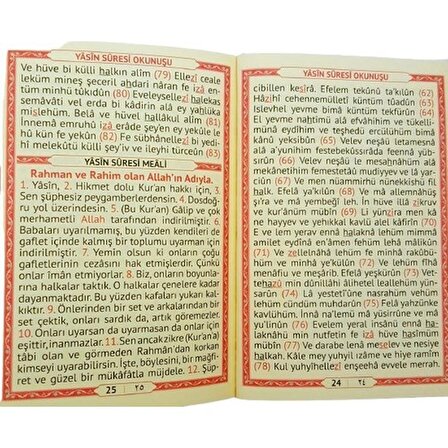 YÂSÎN SÛRESİ OKUNUŞU
cibillen kesîrâ. Efelem tekûnû ta'kılûn (62)
Hâzihî cehennemülletî küntüm tûadûn (63)
Islevhel yevme bimâ küntüm tekfürûn (64)
El yevme nahtimü alâ efvâhihim ve tükelli-
münâ eydîhim ve teşhedü ercülühüm bimâ
kânû yeksibûn (65) Velev neşâü letamesnâ
alâ a'yunihim festebekussırâta feennâ yübsırûn
(66) Velev neşâü le mesahnâhüm alâ
mekânetihim femestetâû mudıyyev ve lâ yarciûn
(67) Ve men nüammirhü nünekkishü fil
halk. Efelâ ya'kılûn (68) Ve mâ allemnâhüş
şi'ra ve mâ yembeğî leh. İn hüve illâ zikruv
ve kur'ânüm mübîn (69) Li yünzira men kâ
ne hayyev ve yehıkkal kavlü alel kâfirîn (70)
E ve lem yerav ennâ halaknâ lehüm mimmâ
amilet eydînâ en'âmen fehüm lehâ mâlikûn
(71) Ve zellelnâhâ lehüm fe minhâ rakûbü-
hüm ve minhâ ye'külûn (72) Ve lehüm fîhâ
menâfiu ve meşârib. Efelâ yeşkürûn (73) Vet-
tehazû min dûnillâhi âliheten leallehüm yünsarûn
(74) Lâ yestetîûne nasrahüm vehüm
lehüm cündüm muhdarûn (75) Felâ yahzünke
kavlühüm. İnnâ na'lemü mâ yüsirrûne ve mâ
yu'linûn (76) Evelem yeral insânü ennâ ha
laknâhü min nutfetin fe izâ hüve hasîmüm
mübîn (77) Ve darabe lenâ meselev ve nesiye
halkah. Kâle mey yuhyil ızâme ve hiye ramîm
(78) Kul yuhyîhellezî enşeehâ evvele merrah.
24 ٢٤
YÂSÎN SÛRESİ OKUNUŞU
Ve hüve bi külli halkın alîm (79) Ellezî ceale
leküm mineş şeceril ahdari nâran fe izâ en-
tüm minhü tûkıdûn (80) Eveleysellezî halekas
semâvâti vel erda bi kâdirin alâ ey yahlüka
mislehüm. Belâ ve hüvel hallâkul alîm (81)
İnnemâ emruhû izâ erâde şey'en ey yekûle le
hû kün fe yekûn (82) Fe sübhânellezî bi yedi-
hî melekûtü külli şey'iv ve ileyhi türceûn (83)
YÂSÎN SÛRESİ MEÂLİ
Rahman ve Rahim olan Allah'ın Adıyla.
1. Yâsîn, 2. Hikmet dolu Kur'an hakkı için, 3.
Sen şüphesiz peygamberlerdensin. 4. Dosdoğ-
ru yol üzerindesin. 5. (Bu Kur'an) Gâlip ve çok
merhametli Allah tarafından indirilmiştir. 6.
Babaları uyarılmamış, bu yüzden kendileri de
gaflet içinde kalmış bir toplumu uyarman için
indirilmiştir. 7. Yemin olsun ki onların çoğu
gafletlerinin cezasını hak etmişlerdir. Çünkü
onlar îmân etmiyorlar. 8. Biz, onların boyunla-
rına halkalar taktık. O halkalar çenelere kadar
dayanmaktadır. Bu yüzden kafaları yukarı kal-
kıktır. 9. Önlerinden bir set ve arkalarından bir
set çektik, onları sardık da, artık göremezler.
10. Onları uyarsan da uyarmasan da onlar için
eşittir, inanmazlar. 11. Sen ancak zikre (Kur'an'a)
tâbi olan ve görmeden Rahmân'dan korkan
kimseyi uyarabilirsin. İşte, böylesini, bir mağfi-
ret ve güzel bir mükâfatla müjdele. 12. Şüp-
25 ٢٥